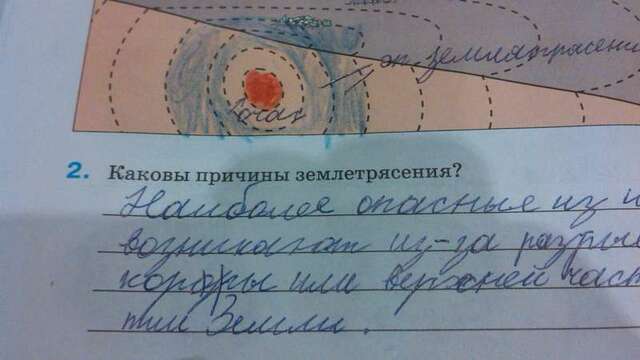 эп. землетрясени
Очаг
2. Каковы причины землетрясения?
Наиболее опасные из н
возникают из-за разры
коры или верхней част
тии Земли.